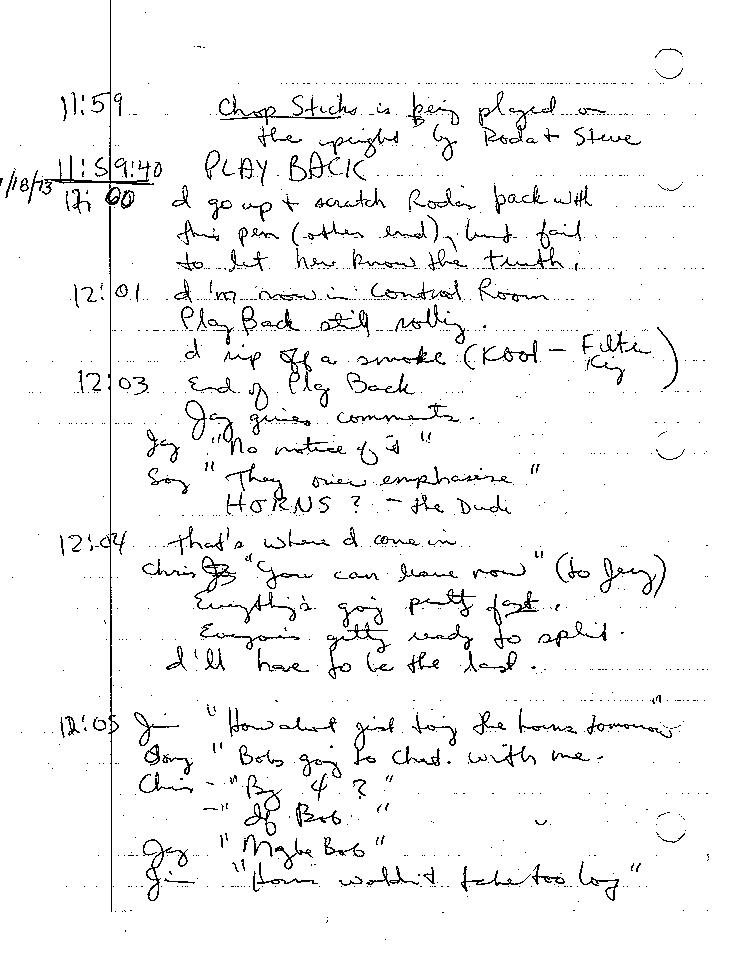 11:59 Chop Sticks is being played on
the upright by Roda + Steve
11:59:40 PLAY BACK
1/18/73
12:00 I go up + scratch Roda's back with
this pen (other end), but fail
to let her know the truth.
12:01 I'm now in Control Room
Play Back still rolling.
I rip off a smoke (Kool - Filter
King)
12:03 End of Play Back
Jay gives comments.
Jay "No notice of it"
Say "They over emphasise"
HORNS? - the Dude
12:04 That's where I come in
Chris "You can leave now" (to Jay)
Everything's going pretty fast.
Everyone's getting ready to split.
I'll have to be the last.
12:05 Jim "How about just doing the horns tomorrow"
"Bobs going to Chat. with me.
Chris - "By 4?"
- "If Bob"
Jay "Maybe Bob"
Jim "Horns wouldn't take too long"